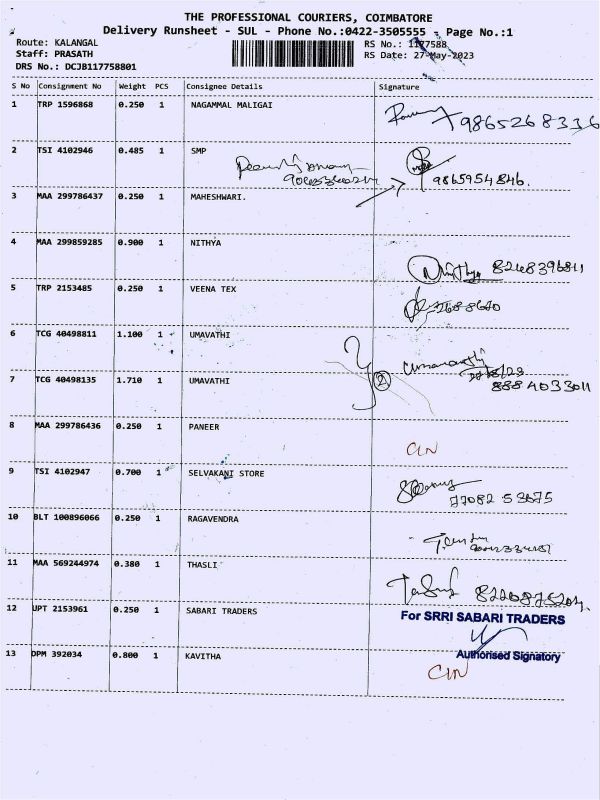 THE PROFESSIONAL COURIERS, COIMBATORE
Delivery Runsheet - SUL - Phone No.:0422-3505555 - Page No.:1
Route: KALANGAL
RS No.: 1177588
Staff: PRASATH
RS Date: 27-May-2023
DRS No.: DCJB117758801
S No Consignment No Weight PCS Consignee Details Signature
1 TRP 1596868 0.250 1 NAGAMMAL MALIGAI
9865268336
2 TSI 4102946 0.485 1 SMP
9865954846.
3 MAA 299786437 0.250 1 MAHESHWARI.
4 MAA 299859285 0.900 1 NITHYA
Nithya 8248396811
5 TRP 2153485 0.250 1 VEENA TEX
6 TCG 40498811 1.100 1 UMAVATHI
2
7 TCG 40498135 1.710 1 UMAVATHI
8884033011
8 MAA 299786436 0.250 1 PANEER
CIN
9 TSI 4102947 0.700 1 SELVAKANI STORE
77082 53675
10 BLT 100896066 0.250 1 RAGAVENDRA
11 MAA 569244974 0.380 1 THASLI
12 UPT 2153961 0.250 1 SABARI TRADERS
For SRRI SABARI TRADERS
Authorised Signatory
13 DPM 392034 0.800 1 KAVITHA
CIN